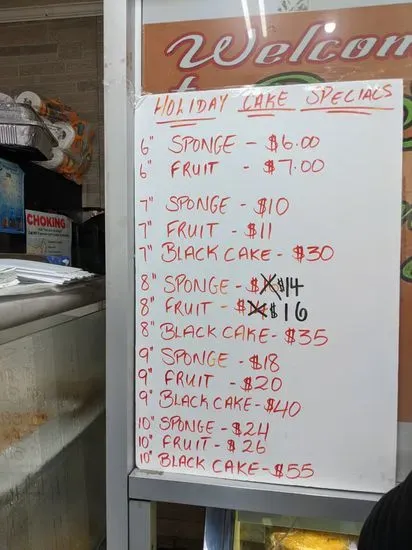 Welcom
HOLIDAY CAKE SPECIALS
6" SPONGE - $6.00
6" FRUIT - $7.00
7" SPONGE - $10
7" FRUIT - $11
7" BLACK CAKE - $30
8" SPONGE - $ $14
8" FRUIT - $ $16
8" BLACK CAKE - $35
9" SPONGE - $18
9" FRUIT - $20
9" BLACK CAKE - $40
10" SPONGE - $24
10" FRUIT - $26
10" BLACK CAKE - $55
CHOKING